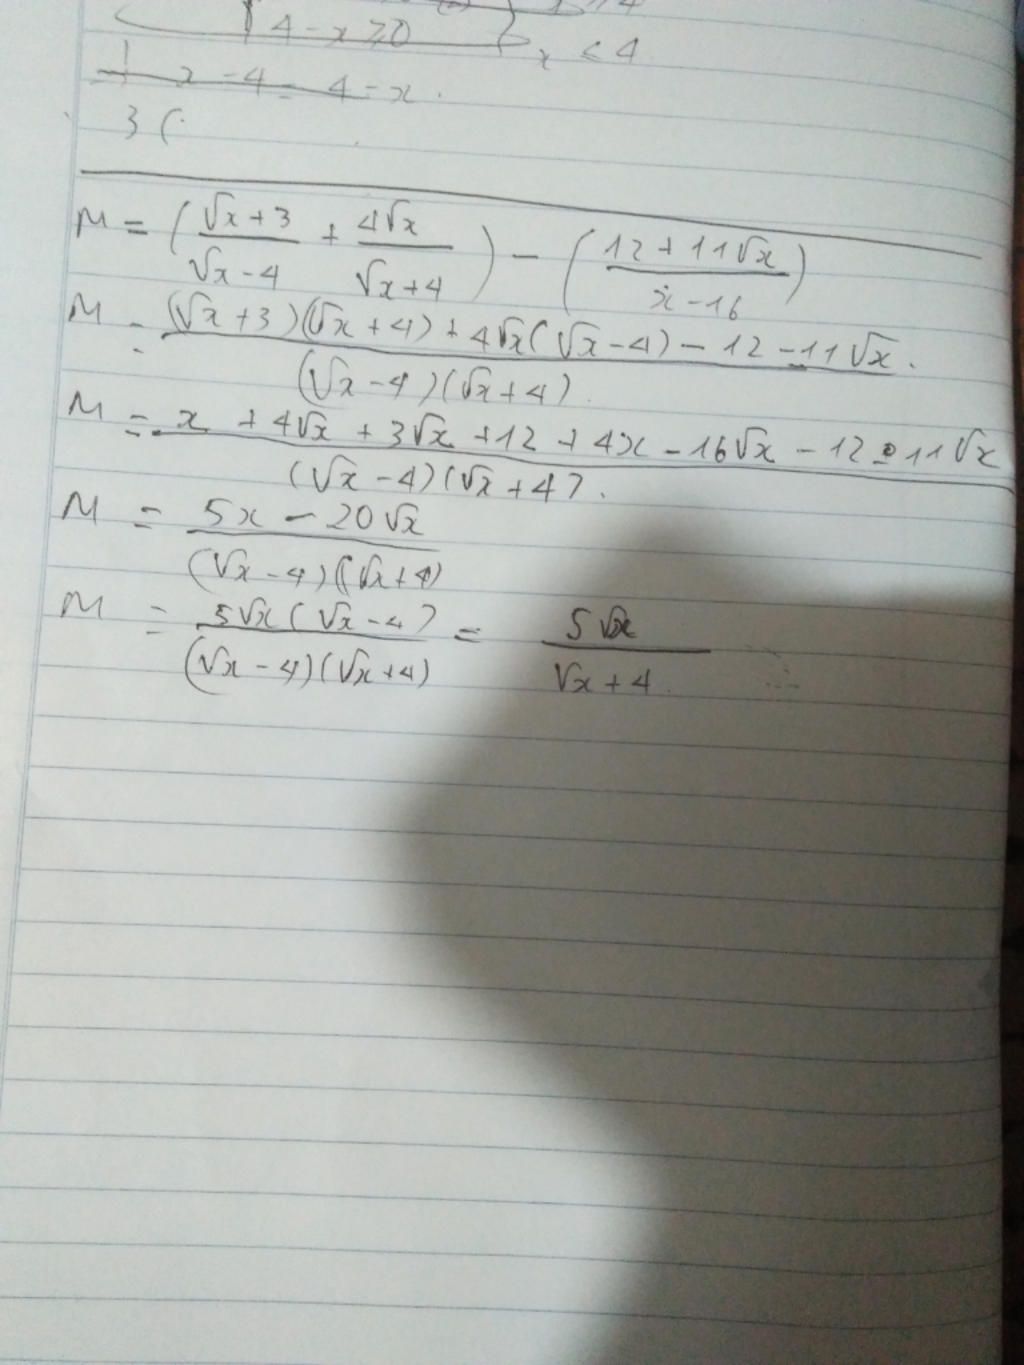 4 - x ≥ 0
x ≤ 4
x - 4 = 4 - x .
3 (
M = ( (√x + 3)/(√x - 4) + (4√x)/(√x + 4) ) - ( (12 + 11√x)/(x - 16) )
M = ((√x + 3)(√x + 4) + 4√x(√x - 4) - 12 - 11√x)/((√x - 4)(√x + 4)) .
M = (x + 4√x + 3√x + 12 + 4x - 16√x - 12 - 11√x)/((√x - 4)(√x + 4)) .
M = (5x - 20√x)/((√x - 4)(√x + 4))
M = (5√x(√x - 4))/((√x - 4)(√x + 4)) = (5√x)/(√x + 4)